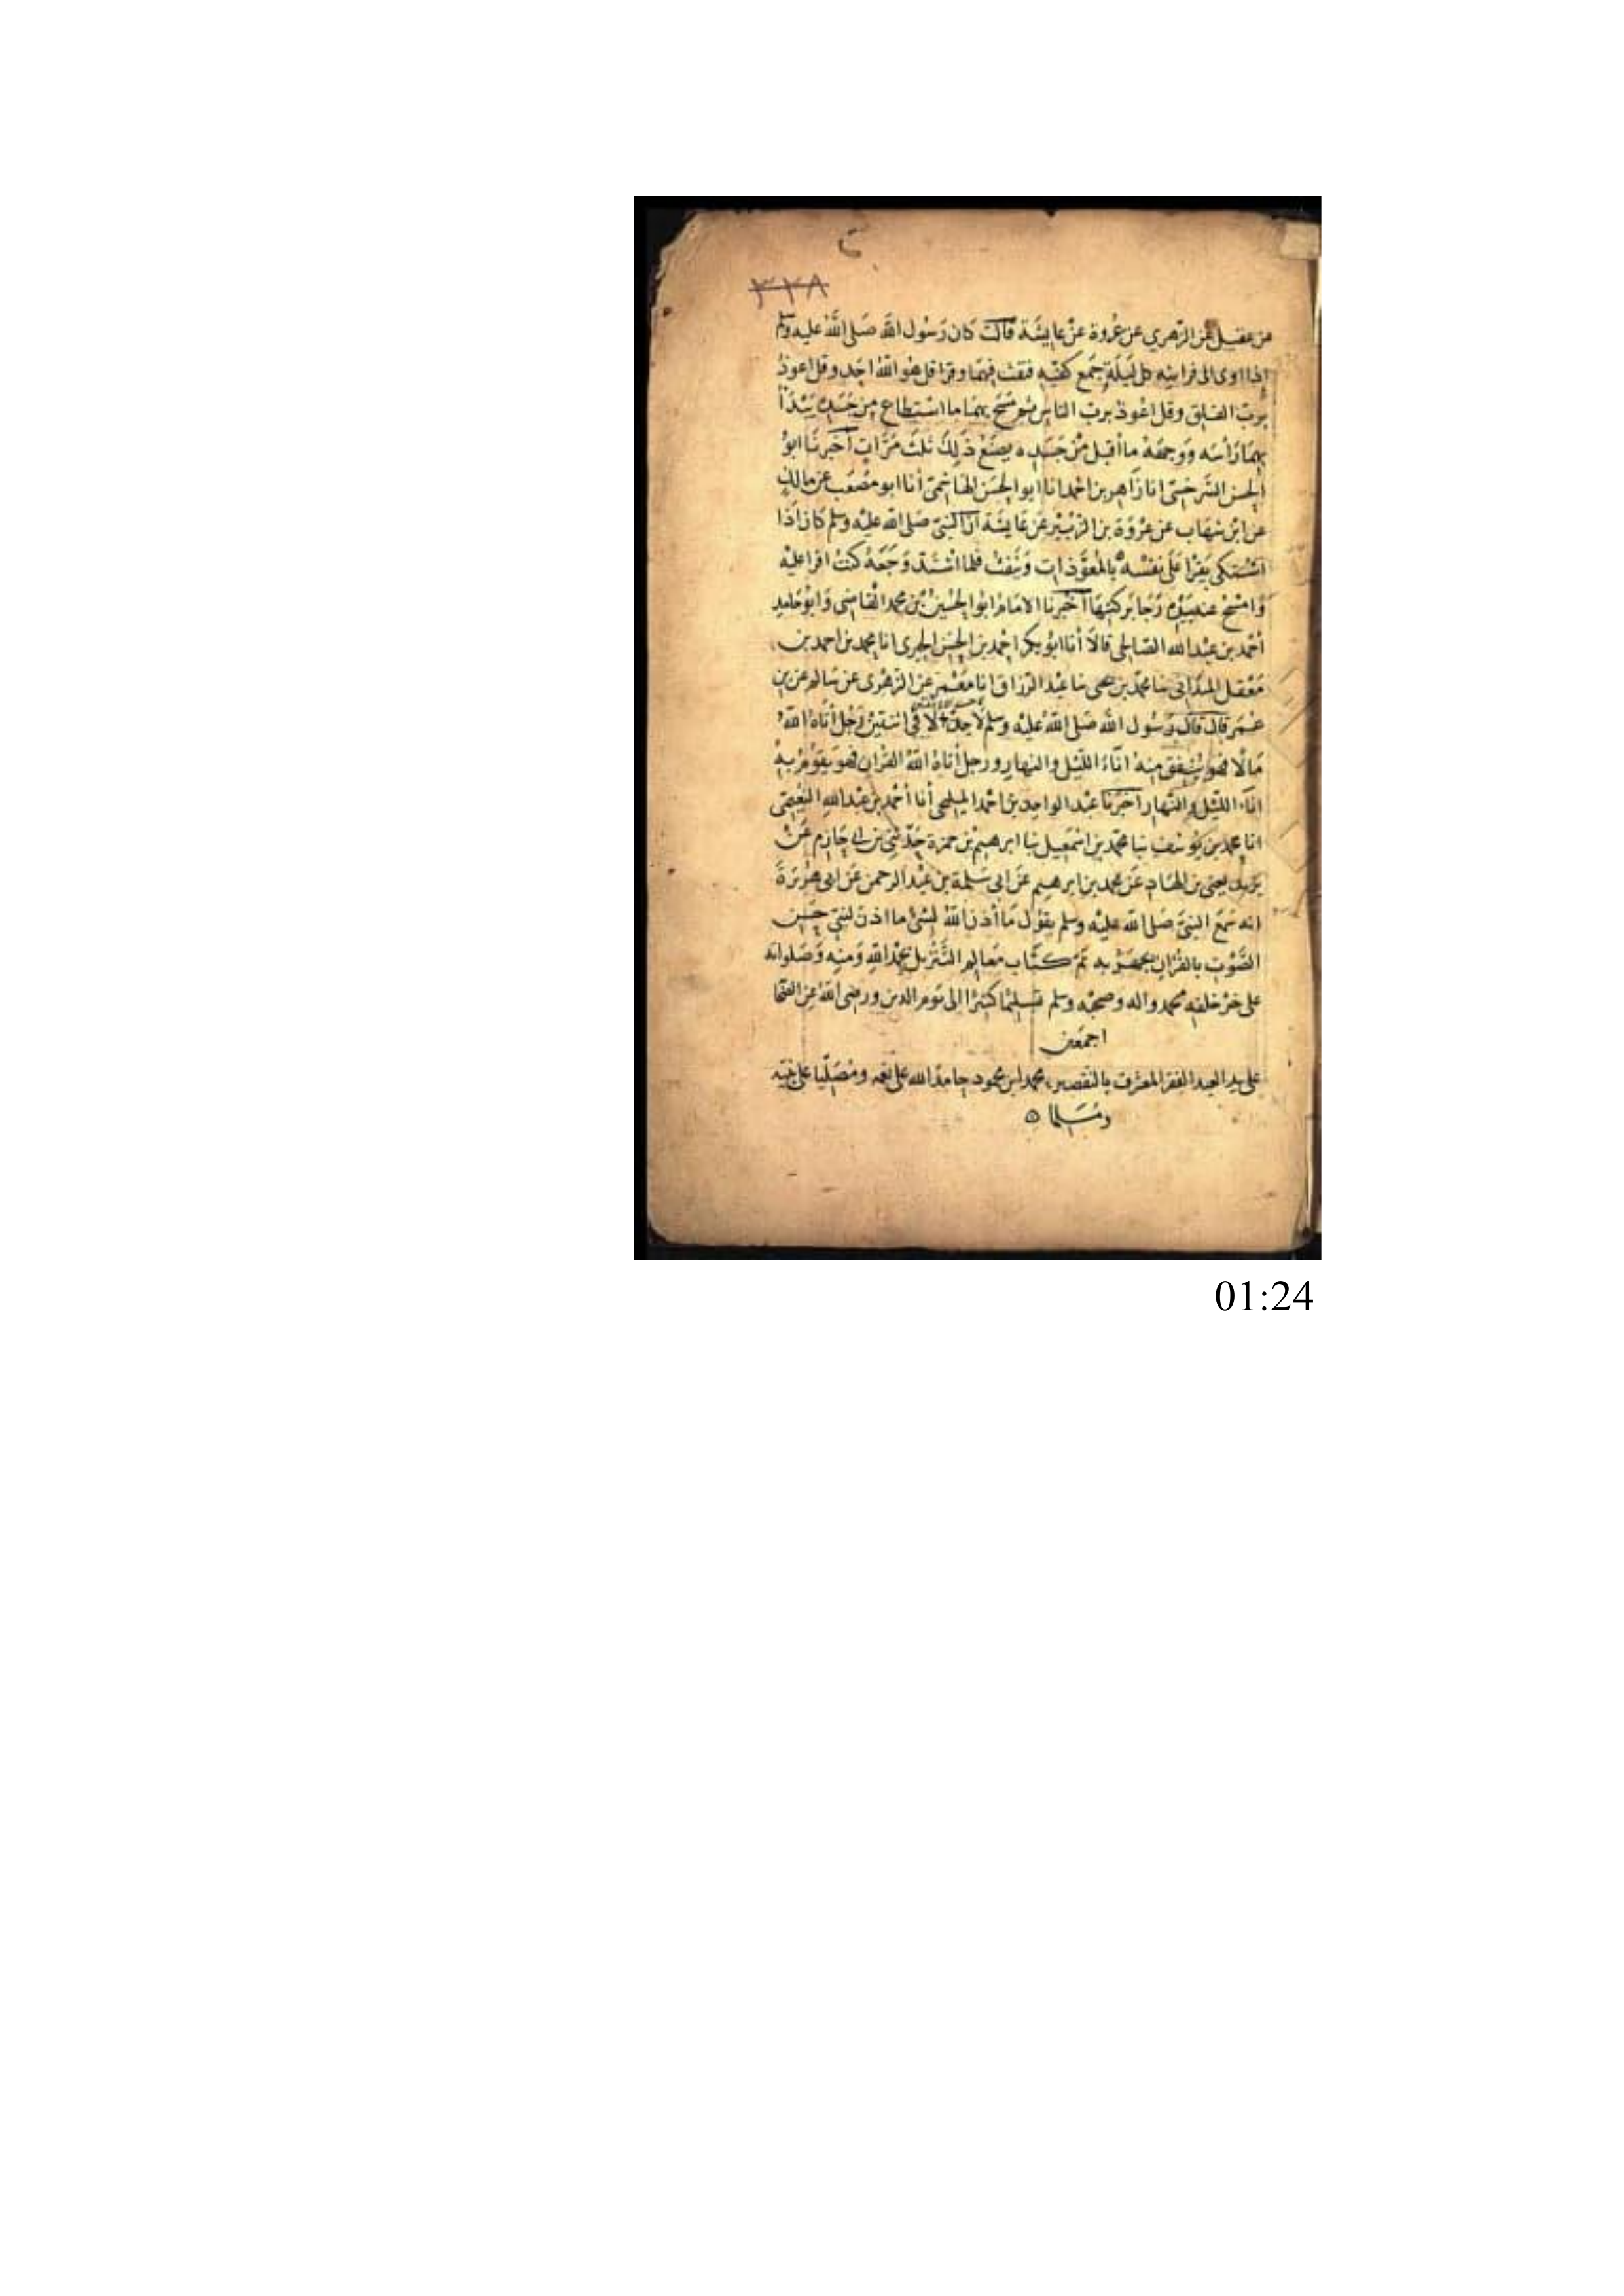 ٣٣٨
عن عقيل عن الزهري عن عروة عن عايشة قالت كان رسول الله صلى الله عليه وسلم
إذا اوى الى فراشه كل ليلة جمع كفيه فنفث فيهما وقرا قل هو الله احد وقل اعوذ
برب الفلق وقل اعوذ برب الناس ثم مسح بهما ما استطاع من جسده يبدأ
بهما رأسه ووجهه وما أقبل من جسده يصنع ذلك ثلث مرات أخبرنا ابو
الحسن السرخسي انا زاهر بن احمد انا ابو الحسن الهاشمي أنا ابو مصعب عن مالك
عن ابن شهاب عن عروة بن الزبير عن عايشة أن النبي صلى الله عليه وسلم كان اذا
اشتكى يقرا على نفسه بالمعوذات وينفث فلما اشتد وجعه كنت اقرا عليه
وامسح عنه بيده رجا بركتها أخبرنا الامام ابو الحسين بن محمد القاضي وابو حامد
أحمد بن عبد الله الصالحي قالا أنا ابو بكر احمد بن الحسن الحيري انا محمد بن احمد بن
معقل الميداني نبا محمد بن يحيى نبا عبد الرزاق انا معمر عن الزهري عن سالم عن بن
عمر قال قال رسول الله صلى الله عليه وسلم لا حسد إلا في اثنتين رجل أتاه الله
مالا فهو ينفق منه اناء الليل والنهار ورجل أتاه الله القران فهو يقوم به
اناء الليل والنهار أخبرنا عبد الواحد بن احمد المليحي أنا أحمد بن عبد الله النعيمي
انا محمد بن يوسف نبا محمد بن اسمعيل نبا ابرهيم بن حمزة حدثني بن ابي حازم عن
يزيد يعني بن الهاد عن محمد بن ابرهيم عن ابي سلمة بن عبد الرحمن عن ابي هريرة
انه سمع النبي صلى الله عليه وسلم يقول ما أذن الله لشئ ما اذن لنبي حسن
الصوت بالقران يجهر به تم كتاب معالم التنزيل بحمد الله ومنه وصلواته
على خير خلقه محمد واله وصحبه وسلم تسليما كثيرا الى يوم الدين ورضي الله عن الصحا
اجمعين
على يد العبد الفقير المعترف بالتقصير محمد ابن محمود حامدا لله على نعمه ومصليا على نبيه
ومسلما
01:24